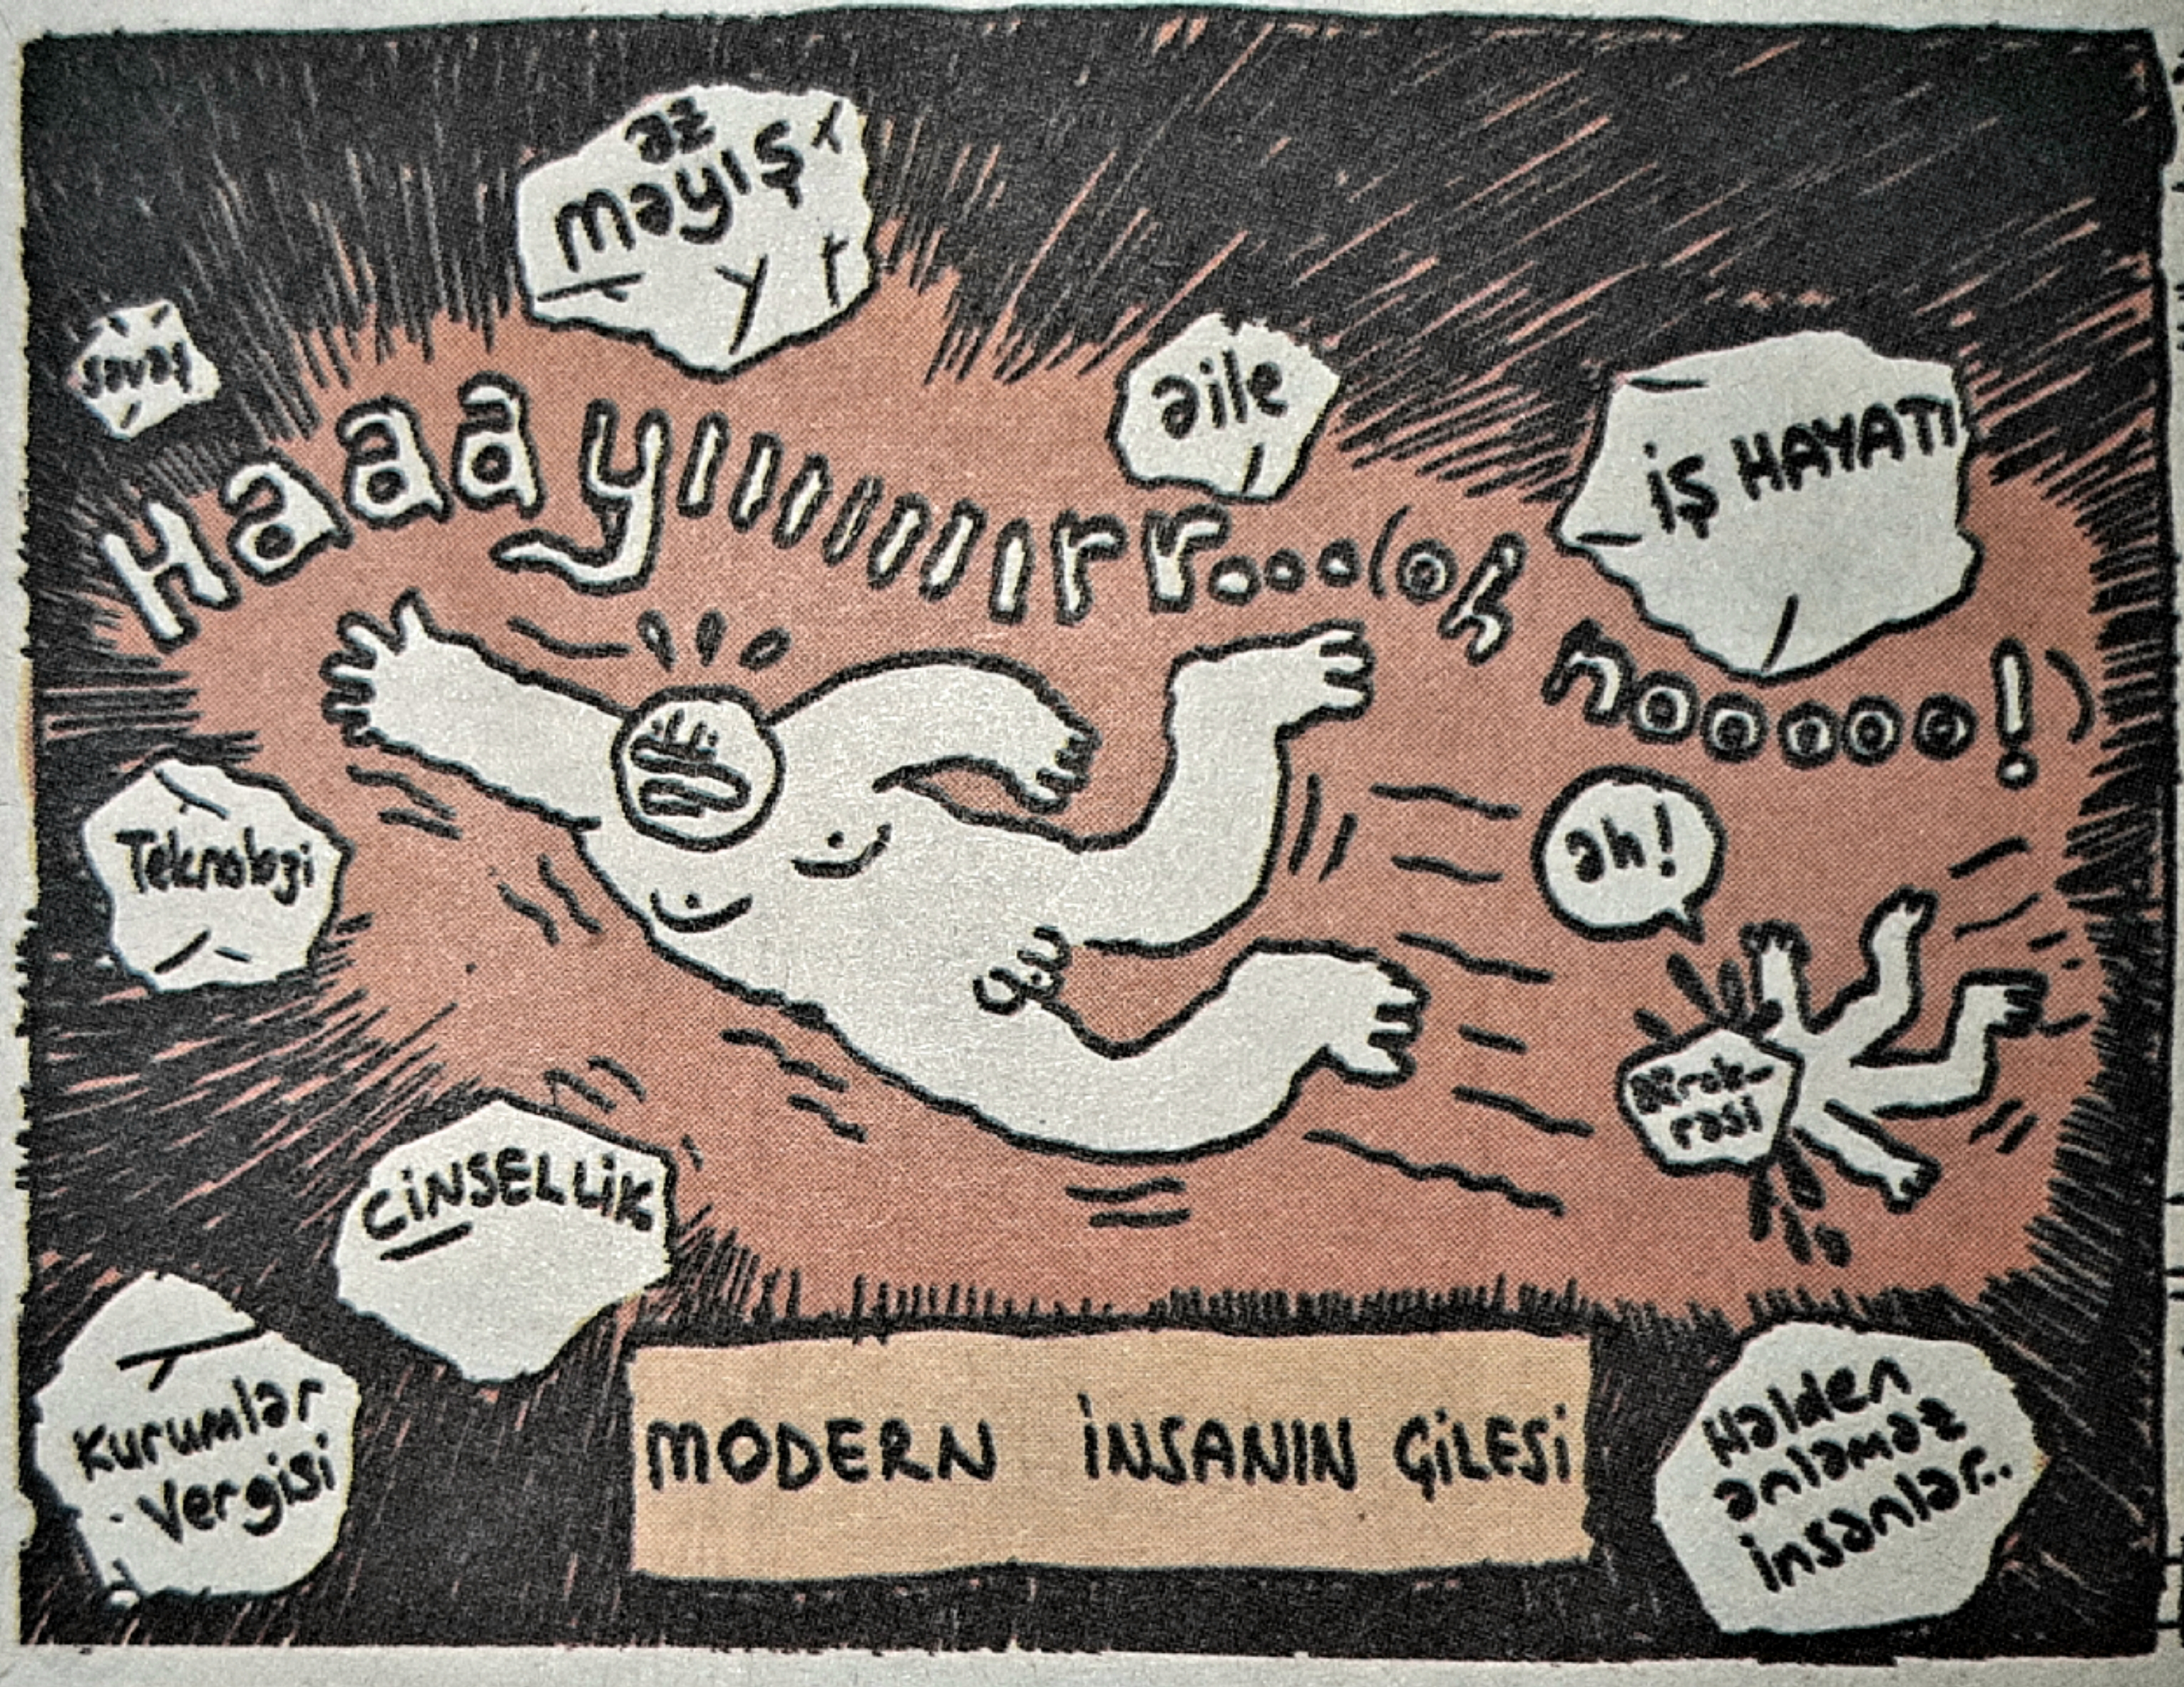 az
mayış
savaş
aile
iş HAYATI
Haaayıııııııırr...(oh nooooo!)
Teknoloji
ah!
Bürok-
rasi
CİNSELLİK
Kurumlar
Vergisi
MODERN İNSANIN ÇİLESİ
Halden
anlamaz
insanlar..